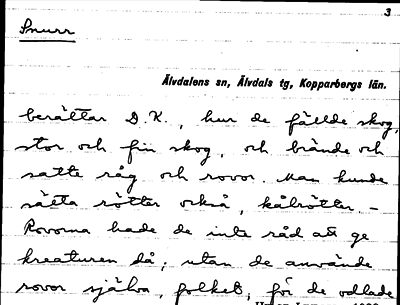 3
Snurr
Älvdalens sn, Älvdals tg, Kopparbergs län.
berättar D.K., hur de fällde skog,
stor och fin skog, och brände och
satte råg och rovor. Man kunde
sätta rötter också, kålrötter. –
Rovorna hade de inte råd att ge
kreaturen då; utan de använde
rovor själva, folket, för de odlade